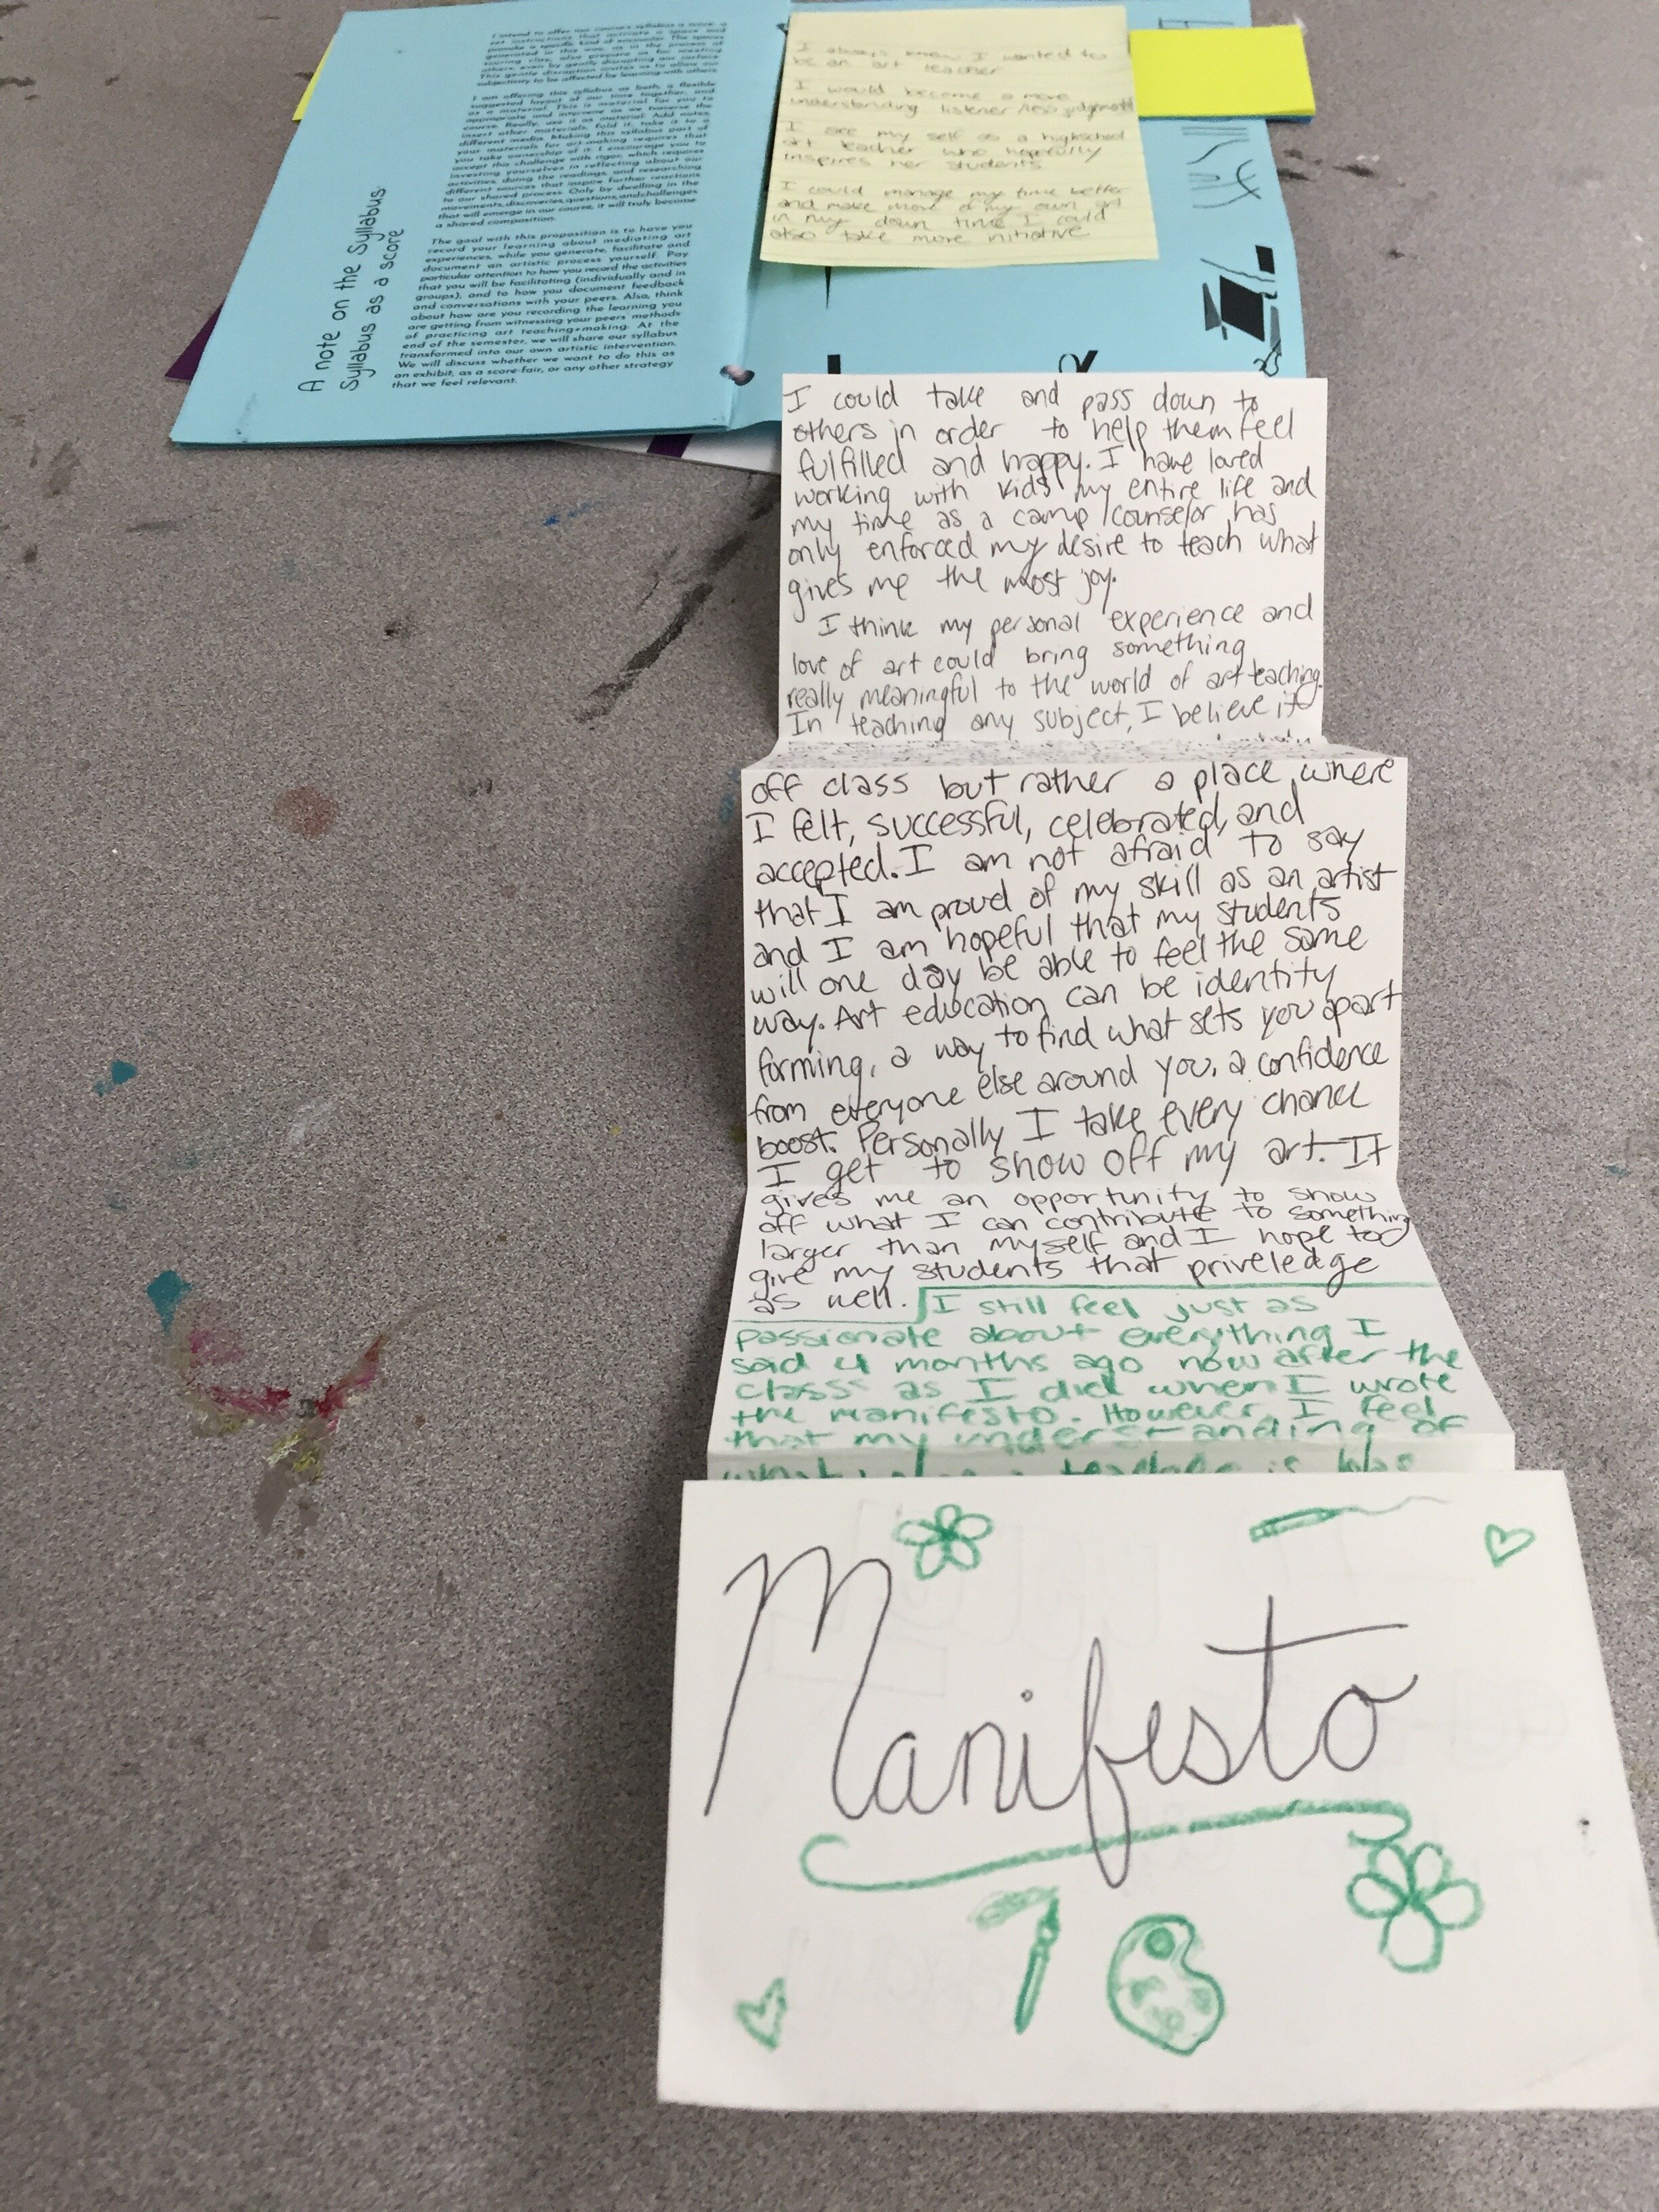 A note on the Syllabus.
Syllabus as a score
I intend to offer our course's syllabus as more, a
set instructions that activate a space and
provoke a specific kind of encounter. The spaces
generated in this way, as in the process of
scoring clay, also prepare us for meeting
others, even by gently disrupting our surface
This gentle disruption invites us to allow our
subjectivity to be affected by learning with others.
I am offering this syllabus as both a flexible
suggested layout of our time together, and
as a material. This is material for you to
appropriate and intervene as we traverse the
course. Really, use it as material. Add notes,
insert other materials, fold it, take it to a
different media. Making this syllabus part of
your materials for art-making requires that
you take ownership of it. I encourage you to
accept this challenge with rigor, which requires
investing yourselves in reflecting about our
activities, doing the readings, and researching
different sources that inspire further reactions
to our shared process. Only by dwelling in the
movements, discoveries, questions, and challenges
that will emerge in our course, it will truly become
a shared composition.
The goal with this proposition is to have you
record your learning about mediating art
experiences, while you generate, facilitate and
document an artistic process yourself. Pay
particular attention to how you record the activities
that you will be facilitating (individually and in
groups), and to how you document feedback
and conversations with your peers. Also, think
about how are you recording the learning you
are getting from witnessing your peers methods
of practicing art teaching+making. At the
end of the semester, we will share our syllabus
transformed into our own artistic intervention.
We will discuss whether we want to do this as
an exhibit, as a score-fair, or any other strategy
that we feel relevant.
I always knew I wanted to
be an art teacher
I would become a more
understanding listener/less judgemental
I see my self as a highschool
art teacher who hopefully
inspires her students
I could manage my time better
and make more of my own art
in my down time I could
also take more initiative
I could take and pass down to
others in order to help them feel
fulfilled and happy. I have loved
working with kids my entire life and
my time as a camp counselor has
only enforced my desire to teach what
gives me the most joy.
I think my personal experience and
love of art could bring something
really meaningful to the world of art teaching.
In teaching any subject, I believe it
off class but rather a place where
I felt, successful, celebrated, and
accepted. I am not afraid to say
that I am proud of my skill as an artist
and I am hopeful that my students
will one day be able to feel the same
way. Art education can be identity
forming, a way to find what sets you apart
from everyone else around you, a confidence
boost. Personally I take every chance
I get to show off my art. It
gives me an opportunity to show
off what I can contribute to something
larger than myself and I hope to
give my students that priveledge
as well. I still feel just as
passionate about everything I
said 4 months ago now after the
class as I did when I wrote
the manifesto. However, I feel
that my understanding of
Manifesto